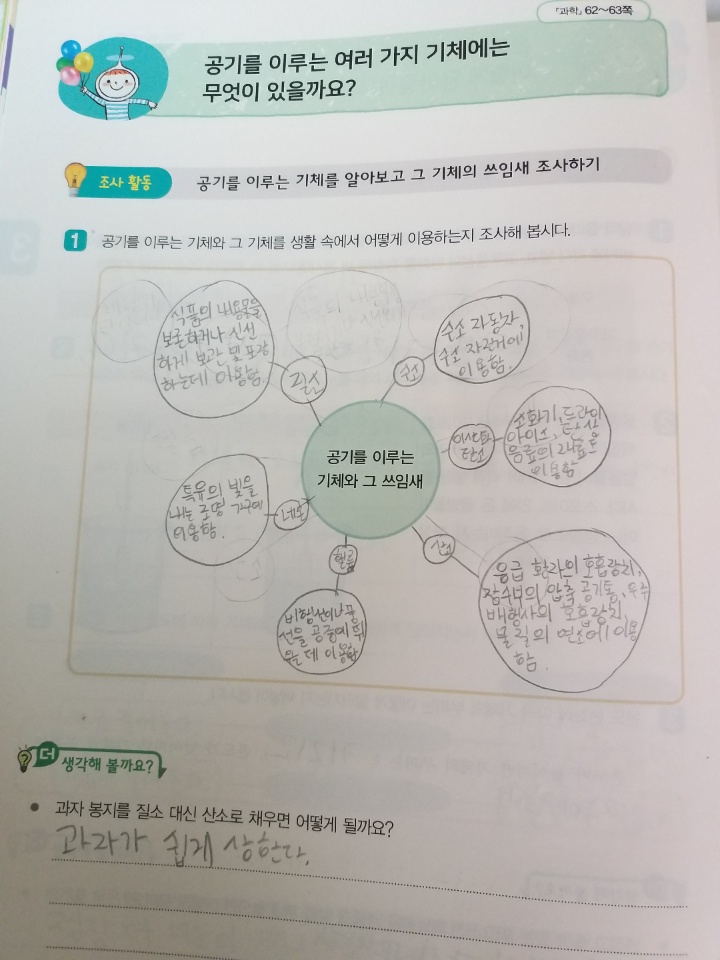 『과학』 62~63쪽
공기를 이루는 여러 가지 기체에는
무엇이 있을까요?
조사 활동
공기를 이루는 기체를 알아보고 그 기체의 쓰임새 조사하기
1 공기를 이루는 기체와 그 기체를 생활 속에서 어떻게 이용하는지 조사해 봅시다.
식품의 내용물을
보존하거나 신선
하게 보관 및 포장
하는데 이용함.
질소
수소
수소 자동차,
수소 자전거에
이용함.
공기를 이루는
기체와 그 쓰임새
이산화
탄소
소화기, 드라이
아이스, 탄산
음료의 재료로
이용함
특유의 빛을
내는 조명 기구에
이용함.
네온
헬륨
비행선이나 풍
선을 공중에 띄
우는데 이용함
산소
응급 환자의 호흡장치,
잠수부의 압축 공기통, 우주
비행사의 호흡장치,
물질의 연소에 이용
함.
더 생각해 볼까요?
과자 봉지를 질소 대신 산소로 채우면 어떻게 될까요?
과자가 쉽게 상한다.